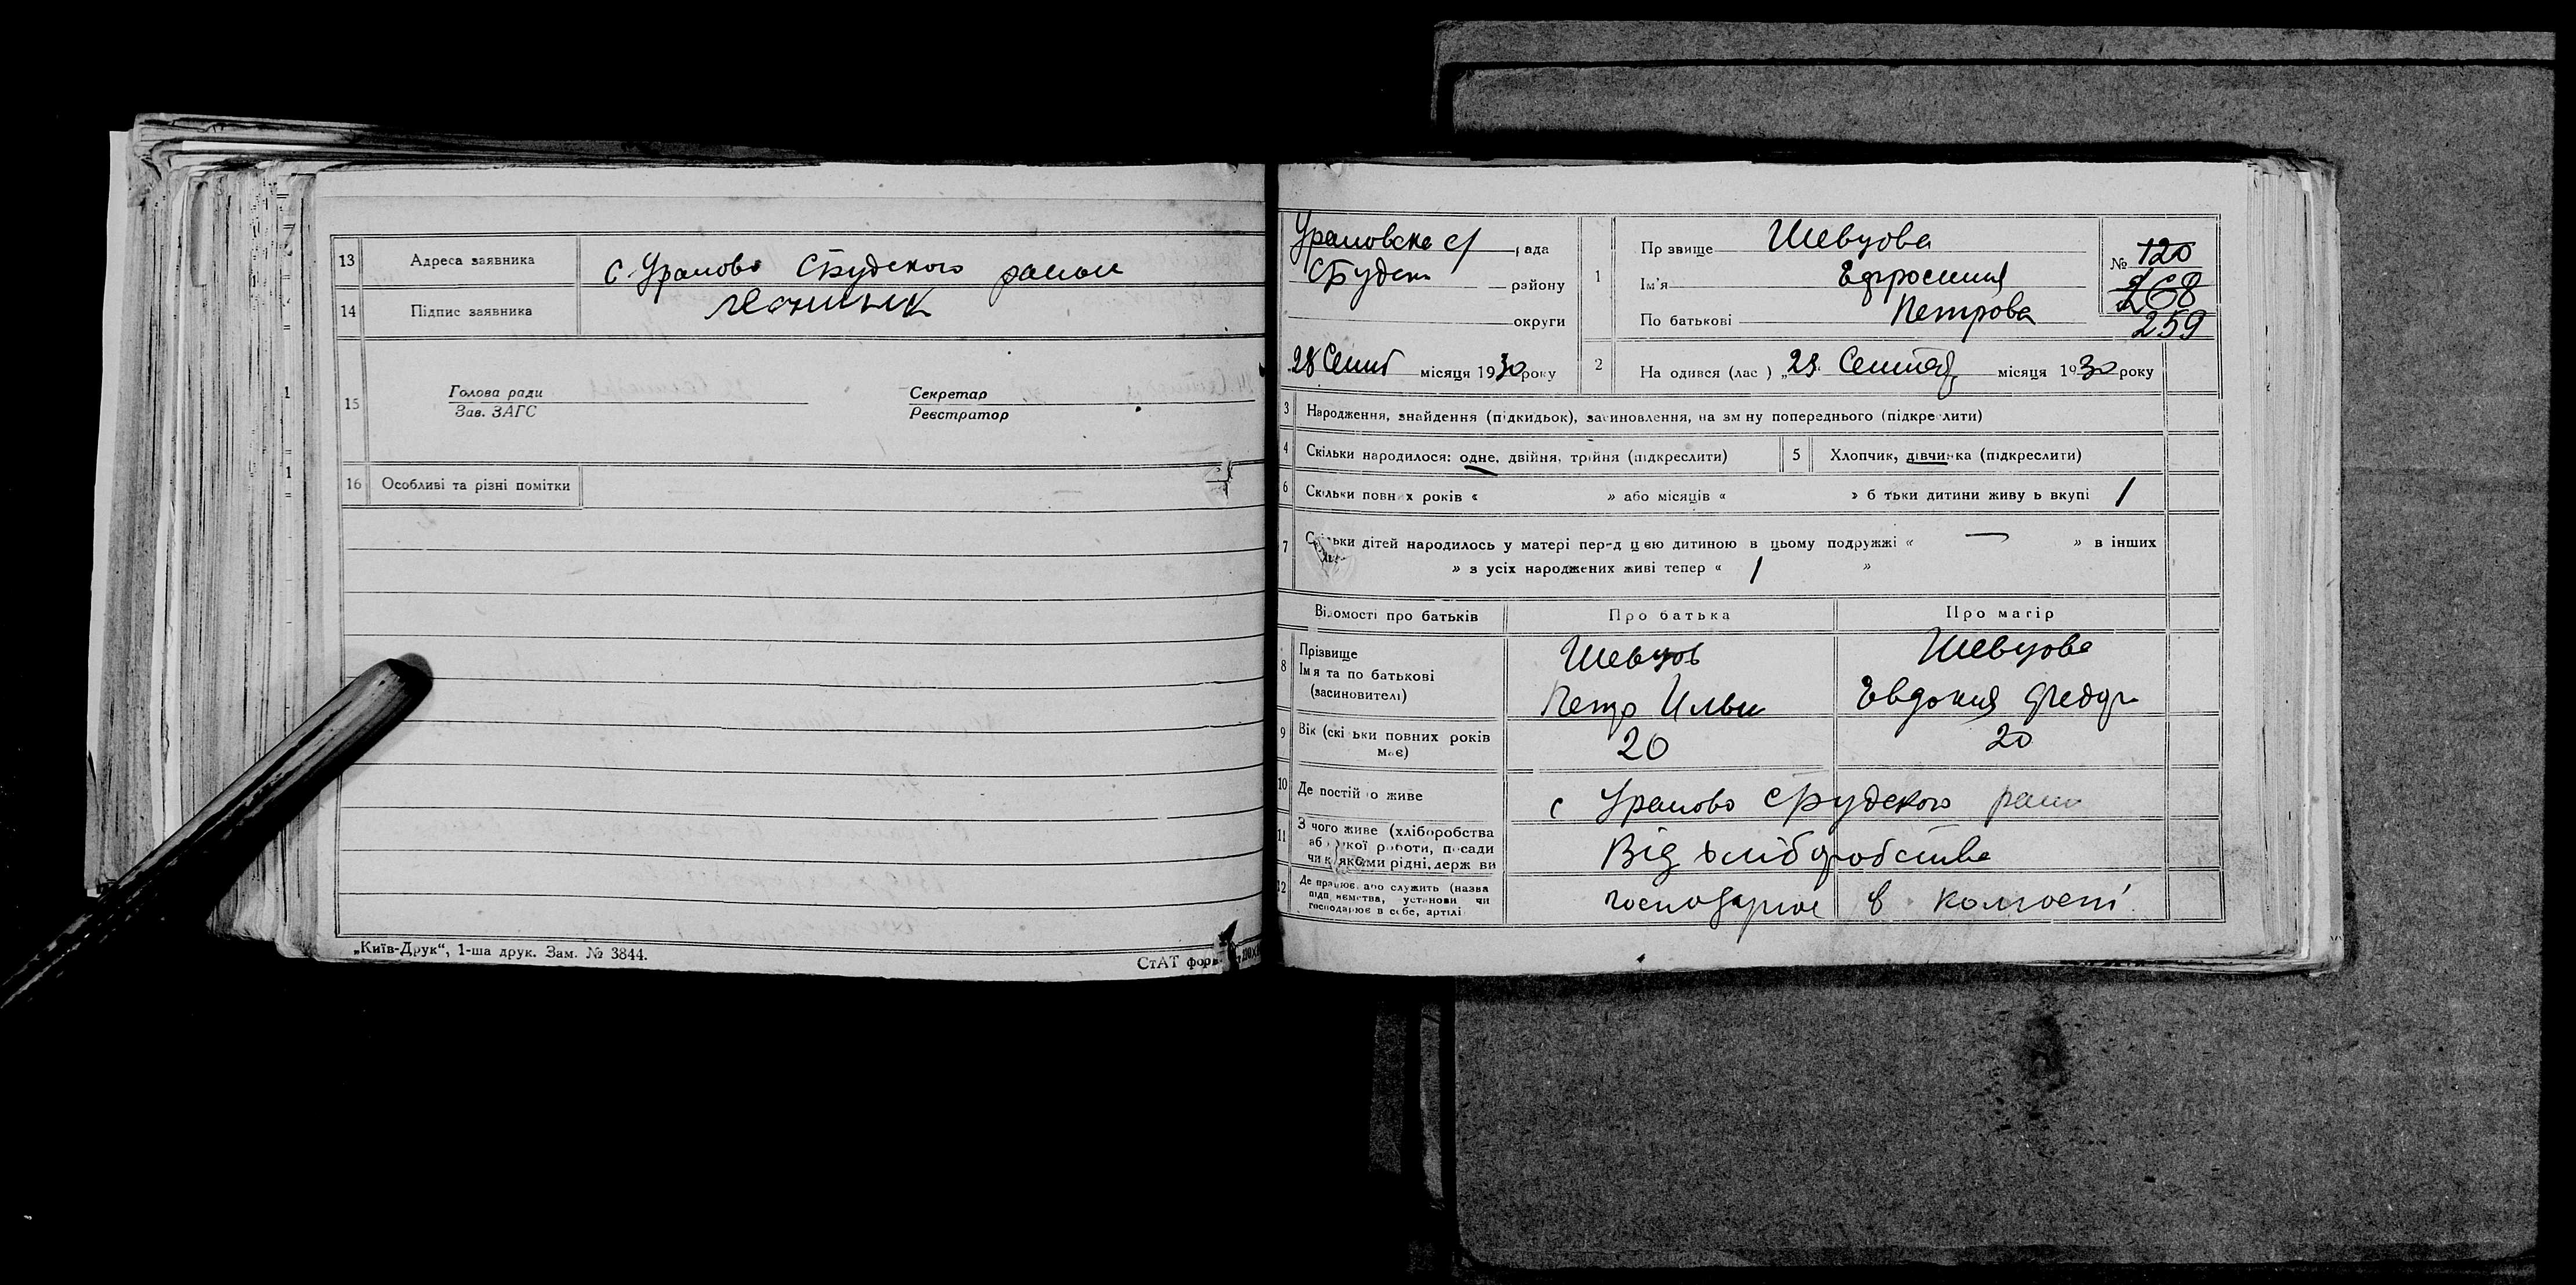 13 Адреса заявника с. Уралово СБудского район
14 Підпис заявника
15 Голова ради Секретар
Зав. ЗАГС Реєстратор
16 Особливі та різні помітки
„Київ-Друк“, 1-ша друк. Зам. № 3844.
СтАТ форм
Ураловска с/ рада
СБудск району
округи
28 Сент місяця 1930 року
1 Пр звище Шевцова
Ім'я Ефросиния
По батькові Петрова
№ 120
268
259
2 На одився (лас ) „23. Сентяб місяця 1930 року
3 Народження, знайдення (підкидьок), засиновлення, на зм ну попереднього (підкреслити)
4 Скільки народилося: одне, двійня, трійня (підкреслити)
5 Хлопчик, дівчинка (підкреслити)
6 Скільки повних років « » або місяців « » б тьки дитини живу ь вкупі 1
7 Скільки дітей народилось у матері перед цією дитиною в цьому подружжі « — » в інших
» з усіх народжених живі тепер « 1 »
Відомості про батьків Про батька Про матір
8 Прізвище
Імя та по батькові
(засиновителі)
Шевцов
Петр Ильи
Шевцова
Евдокия Федор
9 Вік (скі ьки повних років
має)
20 20
10 Де постій о живе с Уралово СБудского райо
11 З чого живе (хліборобства
або якої роботи, посади
чи якоми рідні, держ ви
Від хліборобства
12 Де працює або служить (назва
підприємства, установи чи
господарює в себе, артілі
господарює в